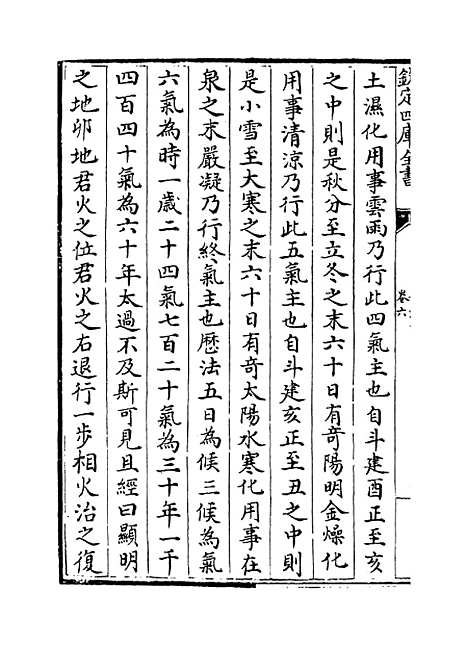 欽定四庫全書
卷六
土濕化用事雲雨乃行此四氣主也自斗建酉正至亥
之中則是秋分至立冬之末六十日有竒陽明金燥化
用事清涼乃行此五氣主也自斗建亥正至丑之中則
是小雪至大寒之末六十日有竒太陽水寒化用事在
泉之末嚴凝乃行終氣主也歴法五日為候三候為氣
六氣為時一歲二十四氣七百二十氣為三十年一千
四百四十氣為六十年太過不及斯可見且經曰顯明
之地卯地君火之位君火之右退行一步相火治之復